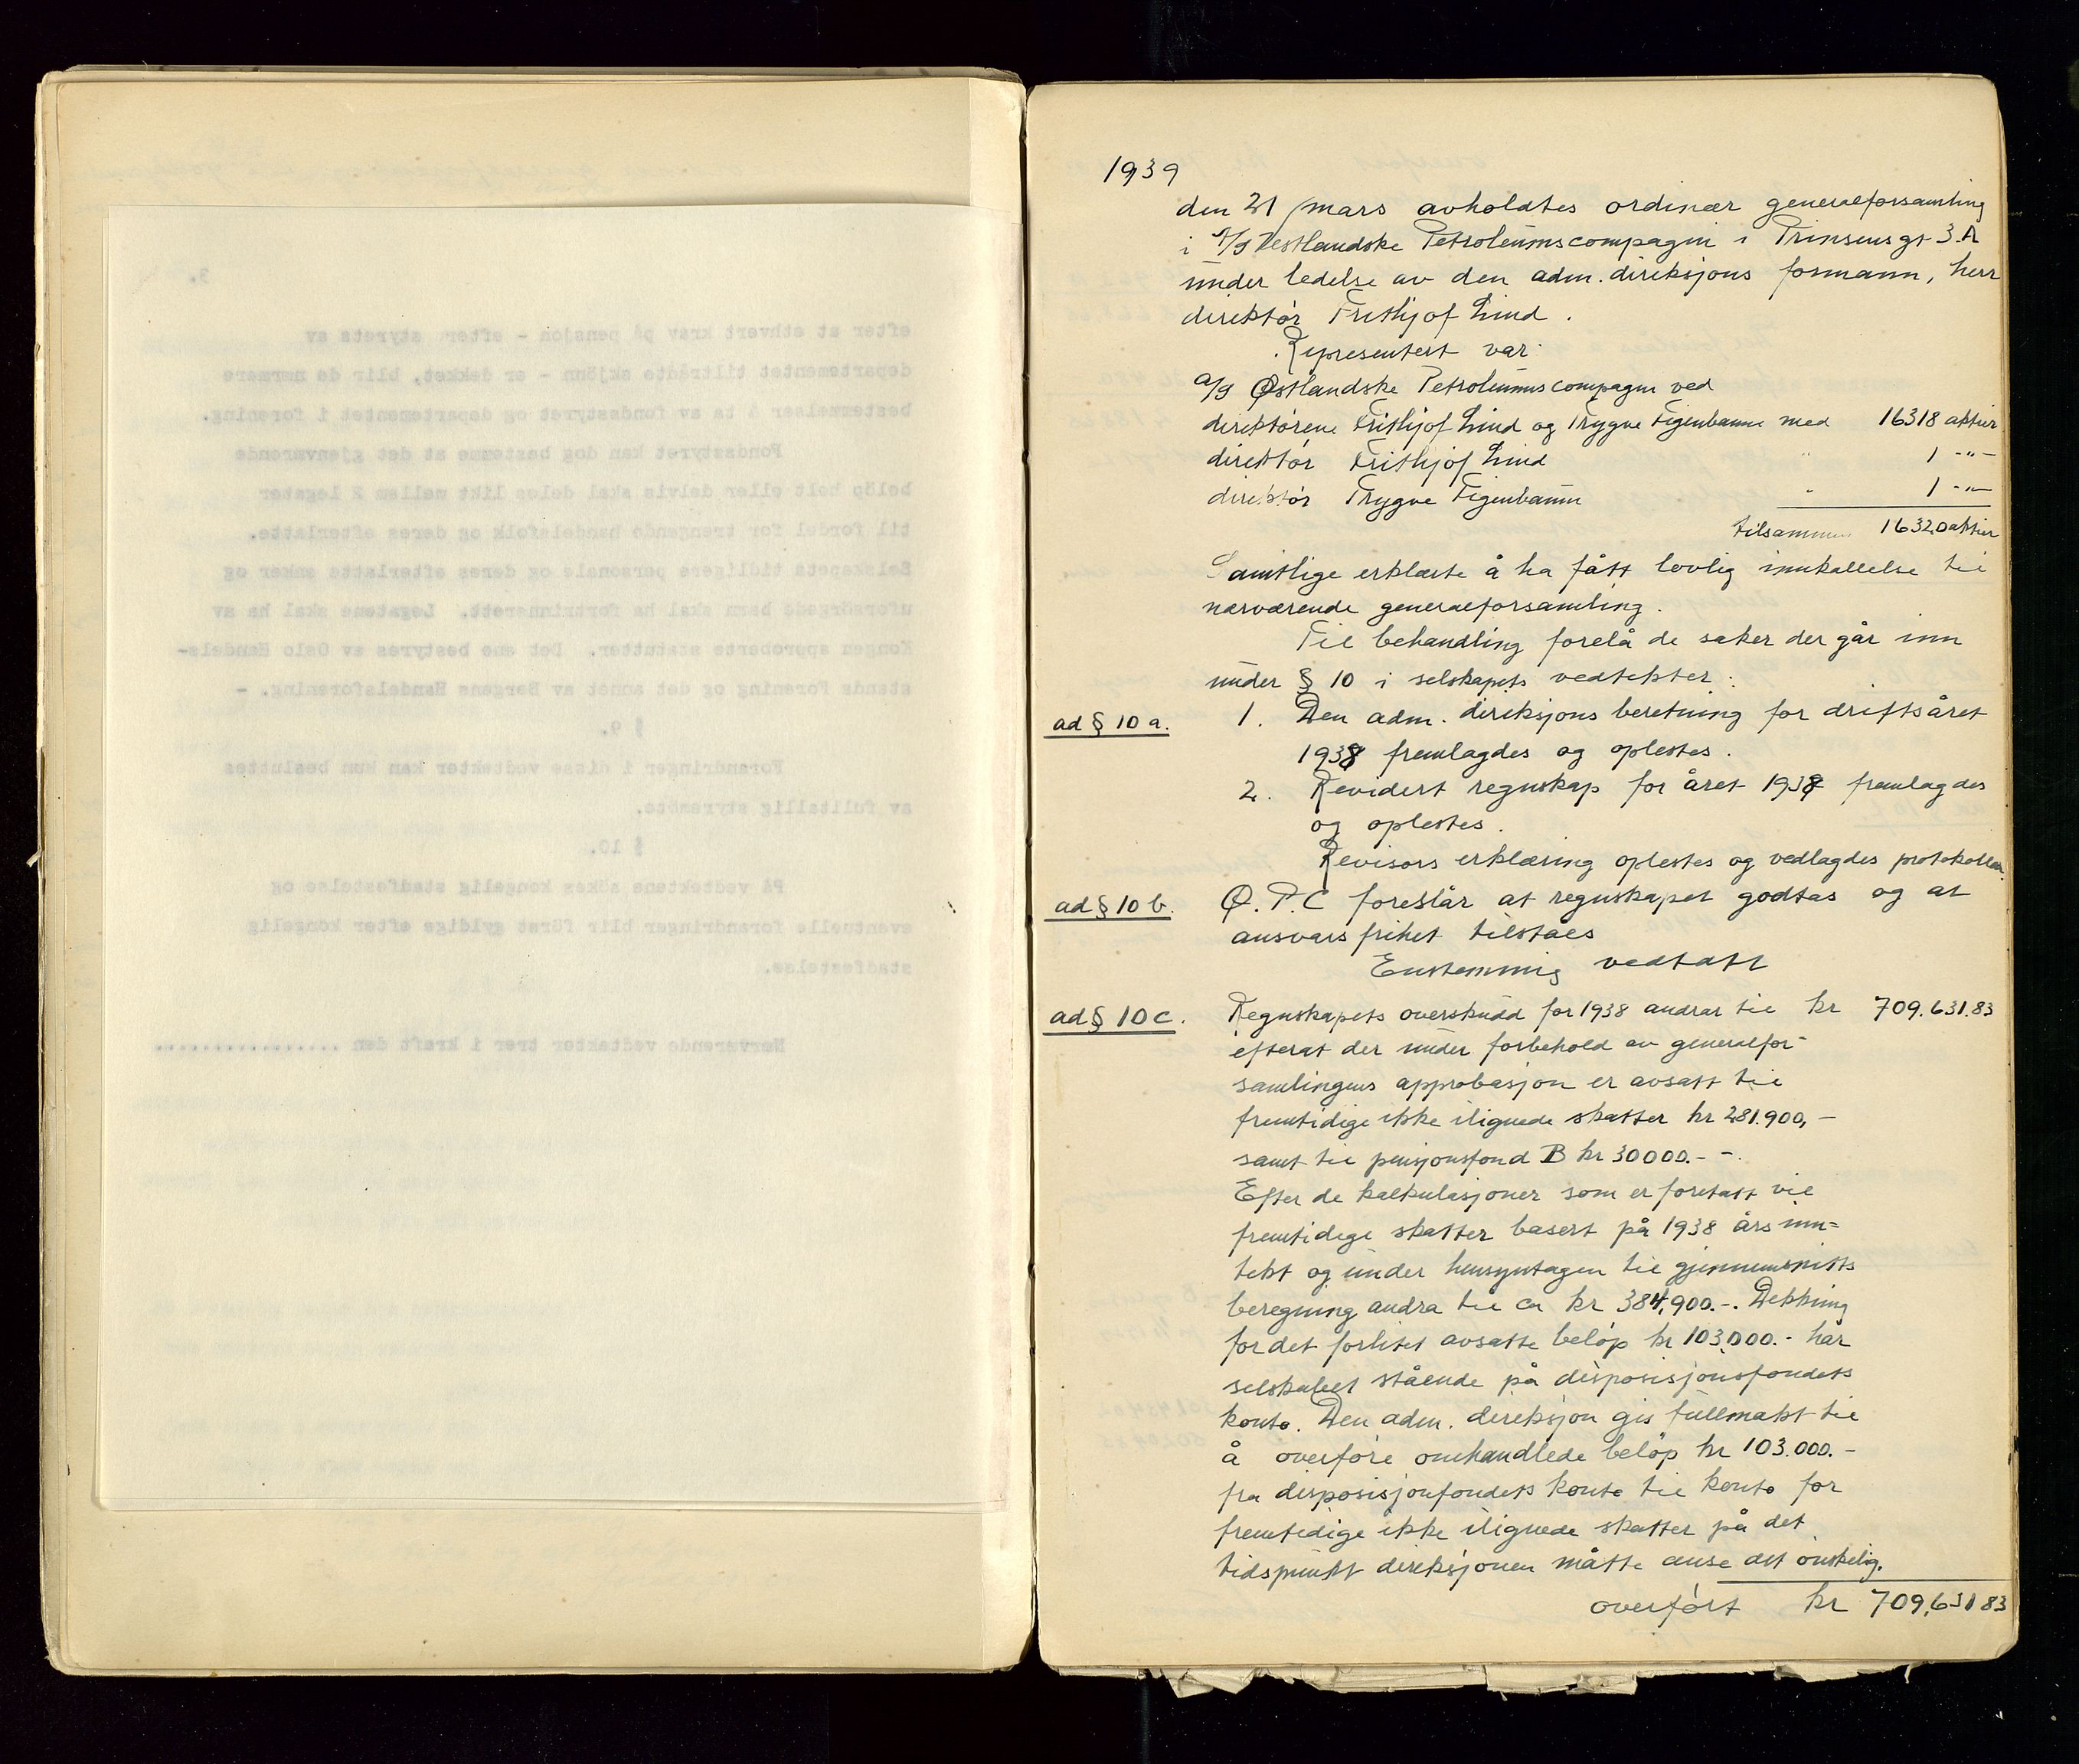 3.
efter at ethvert krav på pensjon - efter styrets av
departementet tiltrådte skjönn - er dekket, blir de nærmere
bestemmelser å ta av fondsstyret og departementet i forening.
Fondsstyret kan dog bestemme at det gjenværende
belöp helt eller delvis skal deles likt mellem 2 legater
til fordel for trengende handelsfolk og deres efterlatte.
Selskapets tidligere personale og deres efterlatte enker og
uforsörgede barn skal ha fortrinnsrett. Legatene skal ha av
Kongen approberte statutter. Det ene bestyres av Oslo Handels-
stands Forening og det annet av Bergens Handelsforening. -
§ 9.
Forandringer i disse vedtekter kan kun besluttes
av fulltallig styremöte.
§ 10.
På vedtektene sökes kongelig stadfestelse og
eventuelle forandringer blir först gyldige efter kongelig
stadfestelse.
Nærværende vedtekter trer i kraft den .................
1939
den 21 mars avholdtes ordinær generalforsamling
i A/S Vestlandske Petroleumscompagni i Prinsensgt 3.A
under ledelse av den adm. direksjons formann, herr
direktör Frithjof Lind.
Representert var:
A/S Østlandske Petroleumscompagni ved
direktörene Frithjof Lind og Trygve Figenbaum med 16318 aktier
direktör Frithjof Lind " 1 -"-
direktör Trygve Figenbaum " 1 -"-
tilsammen 16320 aktier
Samtlige erklærte å ha fått lovlig innkallelse til
nærværende generalforsamling.
Til behandling forelå de saker der går inn
under § 10 i selskapets vedtekter:
ad § 10 a. 1. Den adm. direksjons beretning for driftsåret
1938 fremlagdes og oplestes.
2. Revidert regnskap for året 1938 fremlagdes
og oplestes.
Revisors erklæring oplestes og vedlagdes protokollen.
ad § 10 b. Ø.P.C foreslår at regnskapet godtas og at
ansvarsfrihet tilståes
Enstemmig vedtatt
ad § 10 c. Regnskapets overskudd for 1938 andrar til kr 709.631.83
efterat der under forbehold av generalfor-
samlingens approbasjon er avsatt til
fremtidige ikke ilignede skatter kr 281.900,-
samt til pensjonsfond B kr 30000.- -.
Efter de kalkulasjoner som er foretatt vil
fremtidige skatter basert på 1938 års inn=
tekt og under hensyntagen til gjennemsnitts
beregning andra til ca kr 384,900.-. Dekking
for det forlitet avsatte belöp kr 103.000.- har
selskabet stående på disposisjonsfondets
konto. Den adm. direksjon gis fullmakt til
å overföre omhandlede belöp kr 103.000.-
fra disposisjonfondets konto til konto for
fremtidige ikke ilignede skatter på det
tidspunkt direksjonen måtte anse det önskelig.
overfört kr 709.631 83